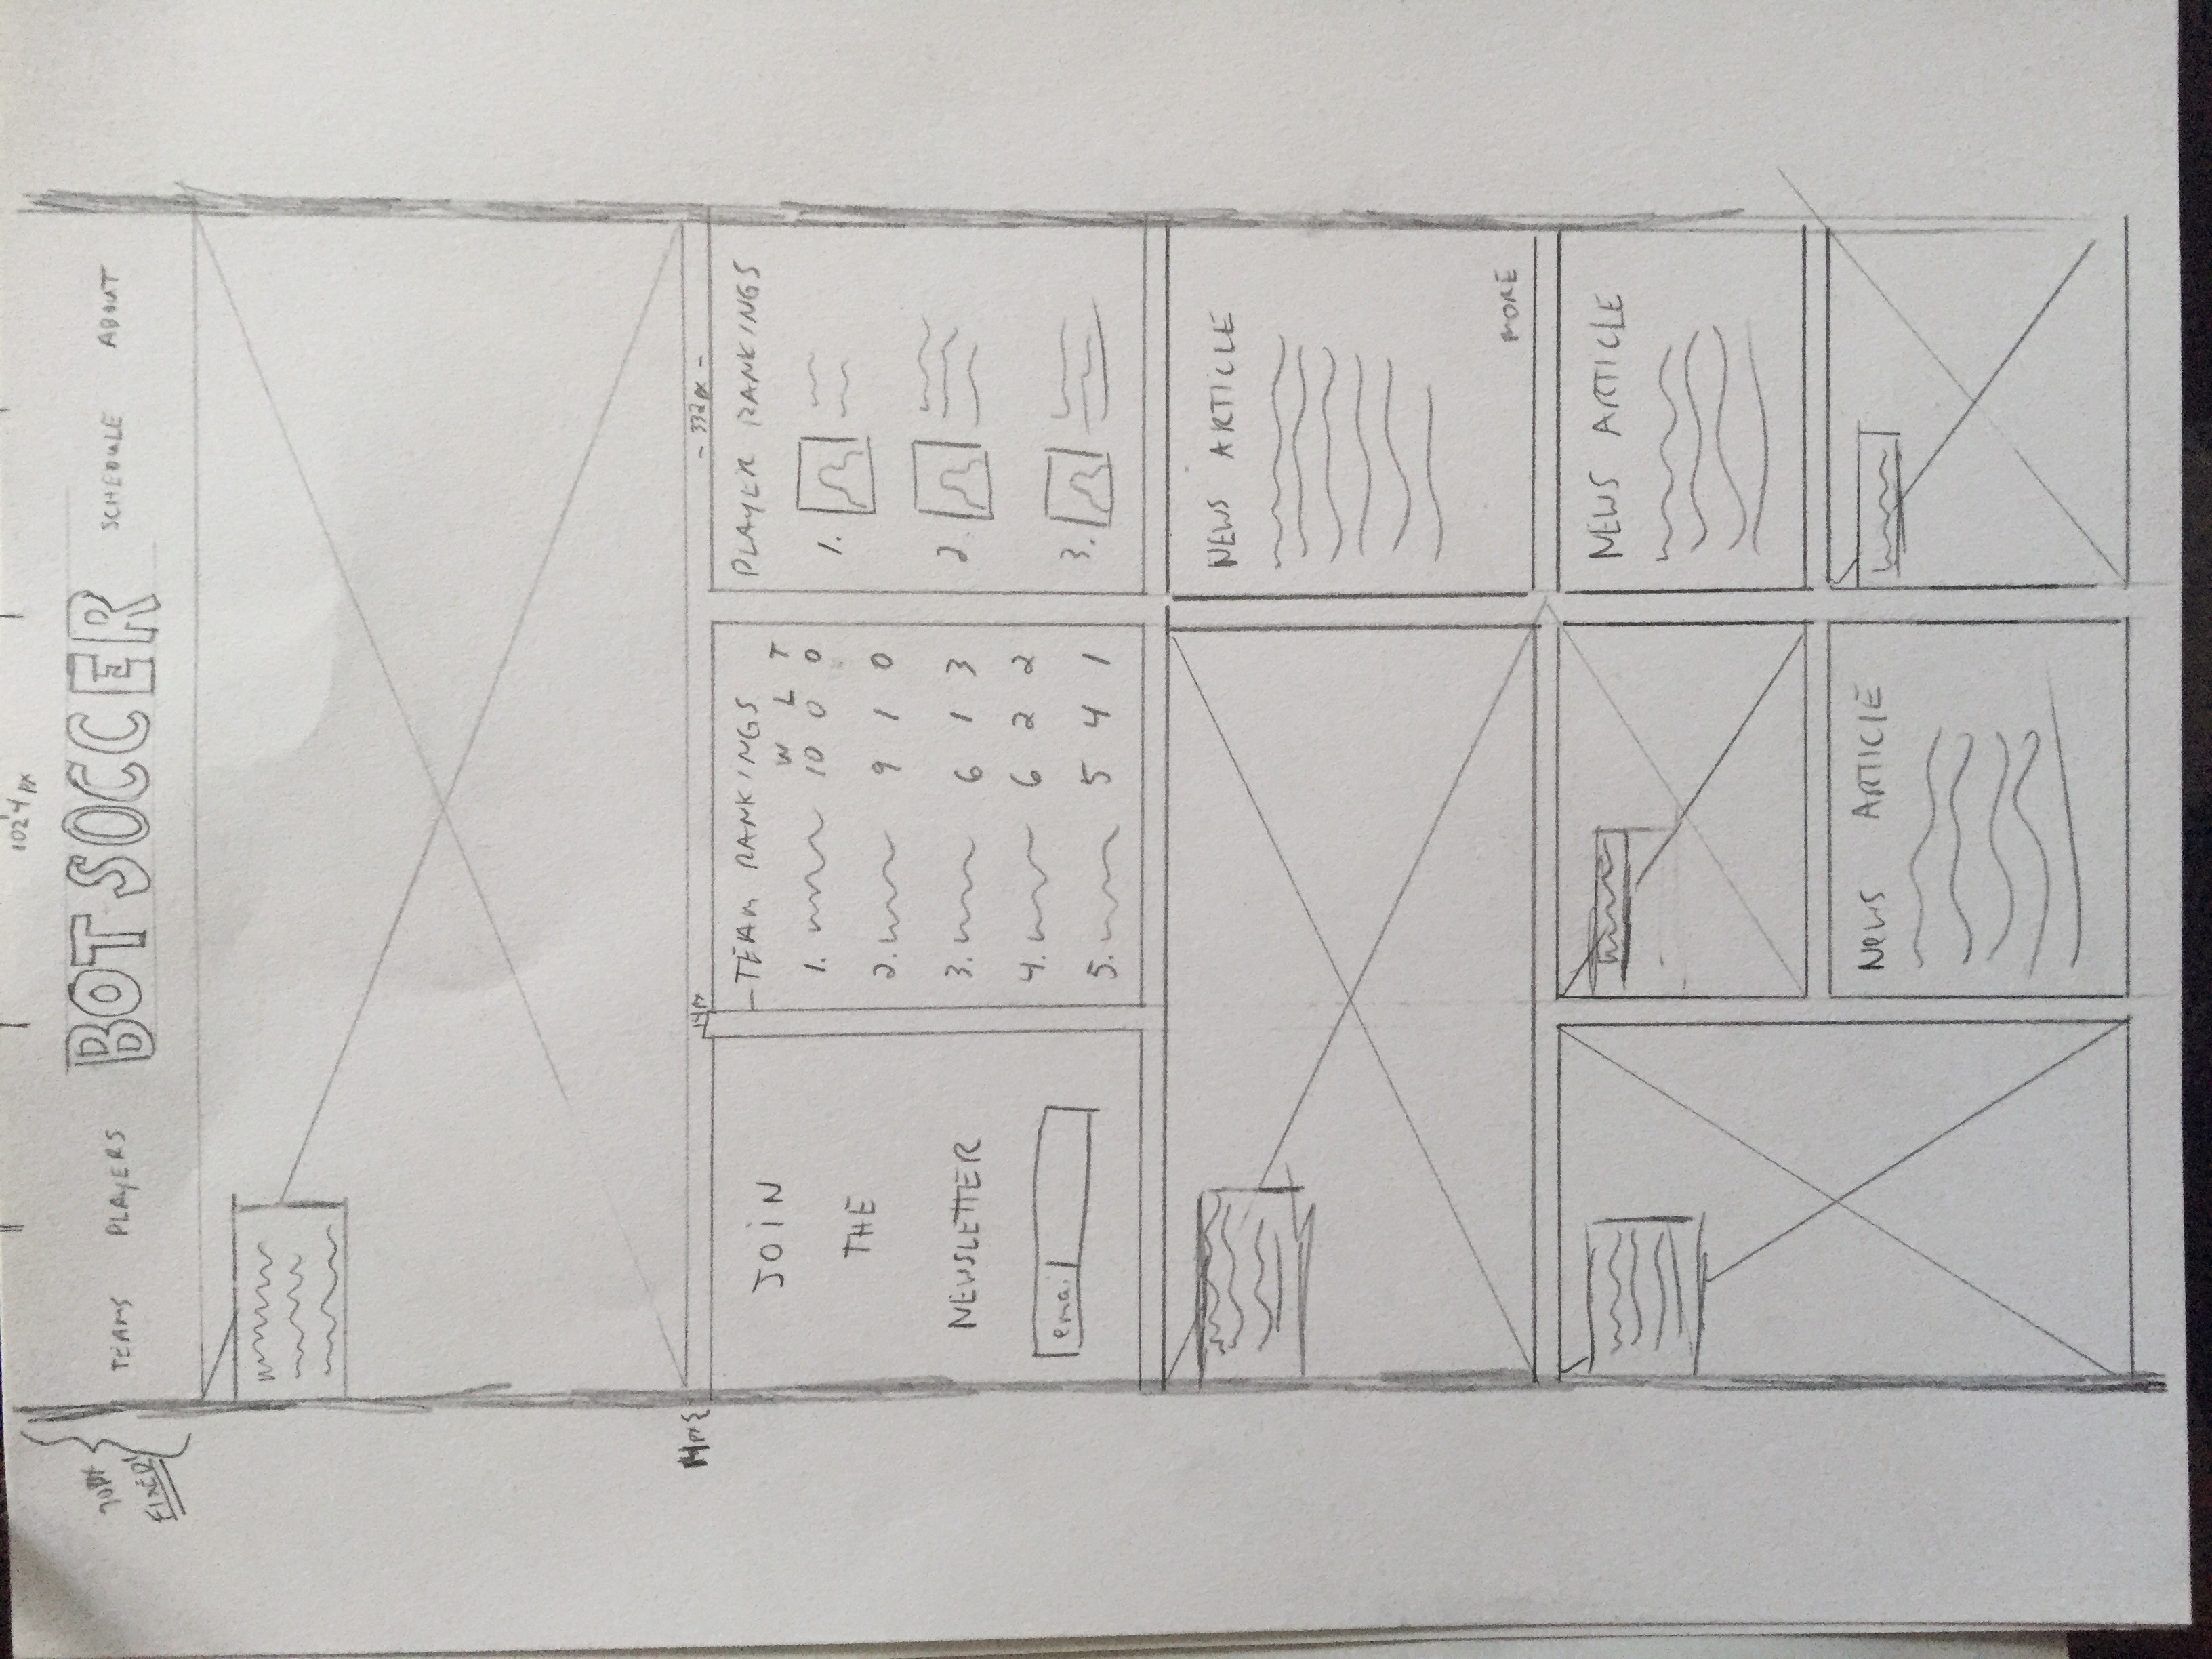 1024 px
70px
FIXED!
TEAMS PLAYERS BOT SOCCER SCHEDULE ABOUT
14px
14px
- 332px -
JOIN
THE
NEWSLETTER
email
TEAM RANKINGS
W L T
1. 10 0 0
2. 9 1 0
3. 6 1 3
4. 6 2 2
5. 5 4 1
PLAYER RANKINGS
1.
2.
3.
NEWS ARTICLE
MORE
NEWS ARTICLE
NEWS ARTICLE